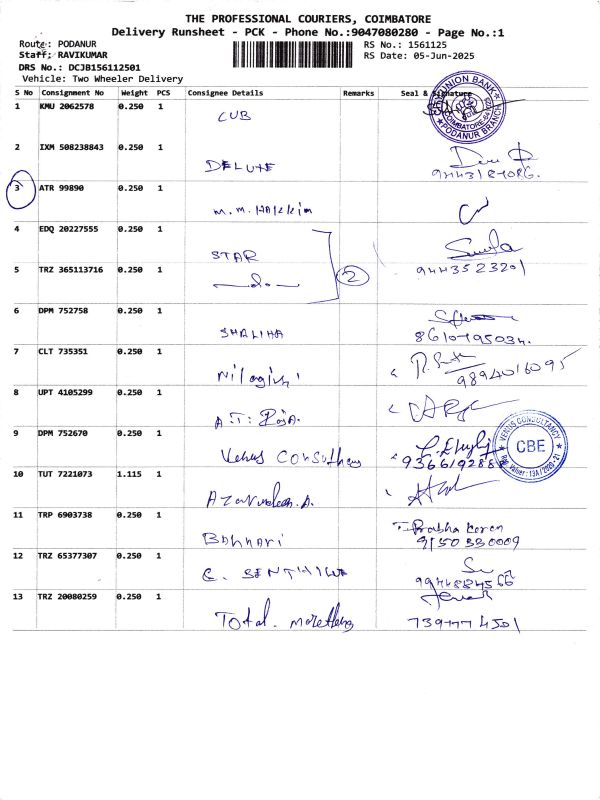 THE PROFESSIONAL COURIERS, COIMBATORE
Delivery Runsheet - PCK - Phone No.:9047080280 - Page No.:1
Route: PODANUR RS No.: 1561125
Staff: RAVIKUMAR RS Date: 05-Jun-2025
DRS No.: DCJB156112501
Vehicle: Two Wheeler Delivery
S No Consignment No Weight PCS Consignee Details Remarks Seal & Signature
1 KMU 2062578 0.250 1 CUB
UNION BANK PODANUR BRANCH
2 IXM 508238843 0.250 1 DELUXE
3 ATR 99890 0.250 1 M.M. HAKKIM
4 EDQ 20227555 0.250 1 STAR
9443523201
5 TRZ 365113716 0.250 1 -do- 2
6 DPM 752758 0.250 1 SHALIHA
8610795034.
7 CLT 735351 0.250 1 Nilagiri
9894016095
8 UPT 4105299 0.250 1 A.T. Raja.
9 DPM 752670 0.250 1 Venus Consultancy
VENUS CONSULTANCY CBE
10 TUT 7221073 1.115 1
11 TRP 6903738 0.250 1 BANNARI
Prabha karan
9150330009
12 TRZ 65377307 0.250 1 C. SENTHIL
9944884566
13 TRZ 20080259 0.250 1 Total